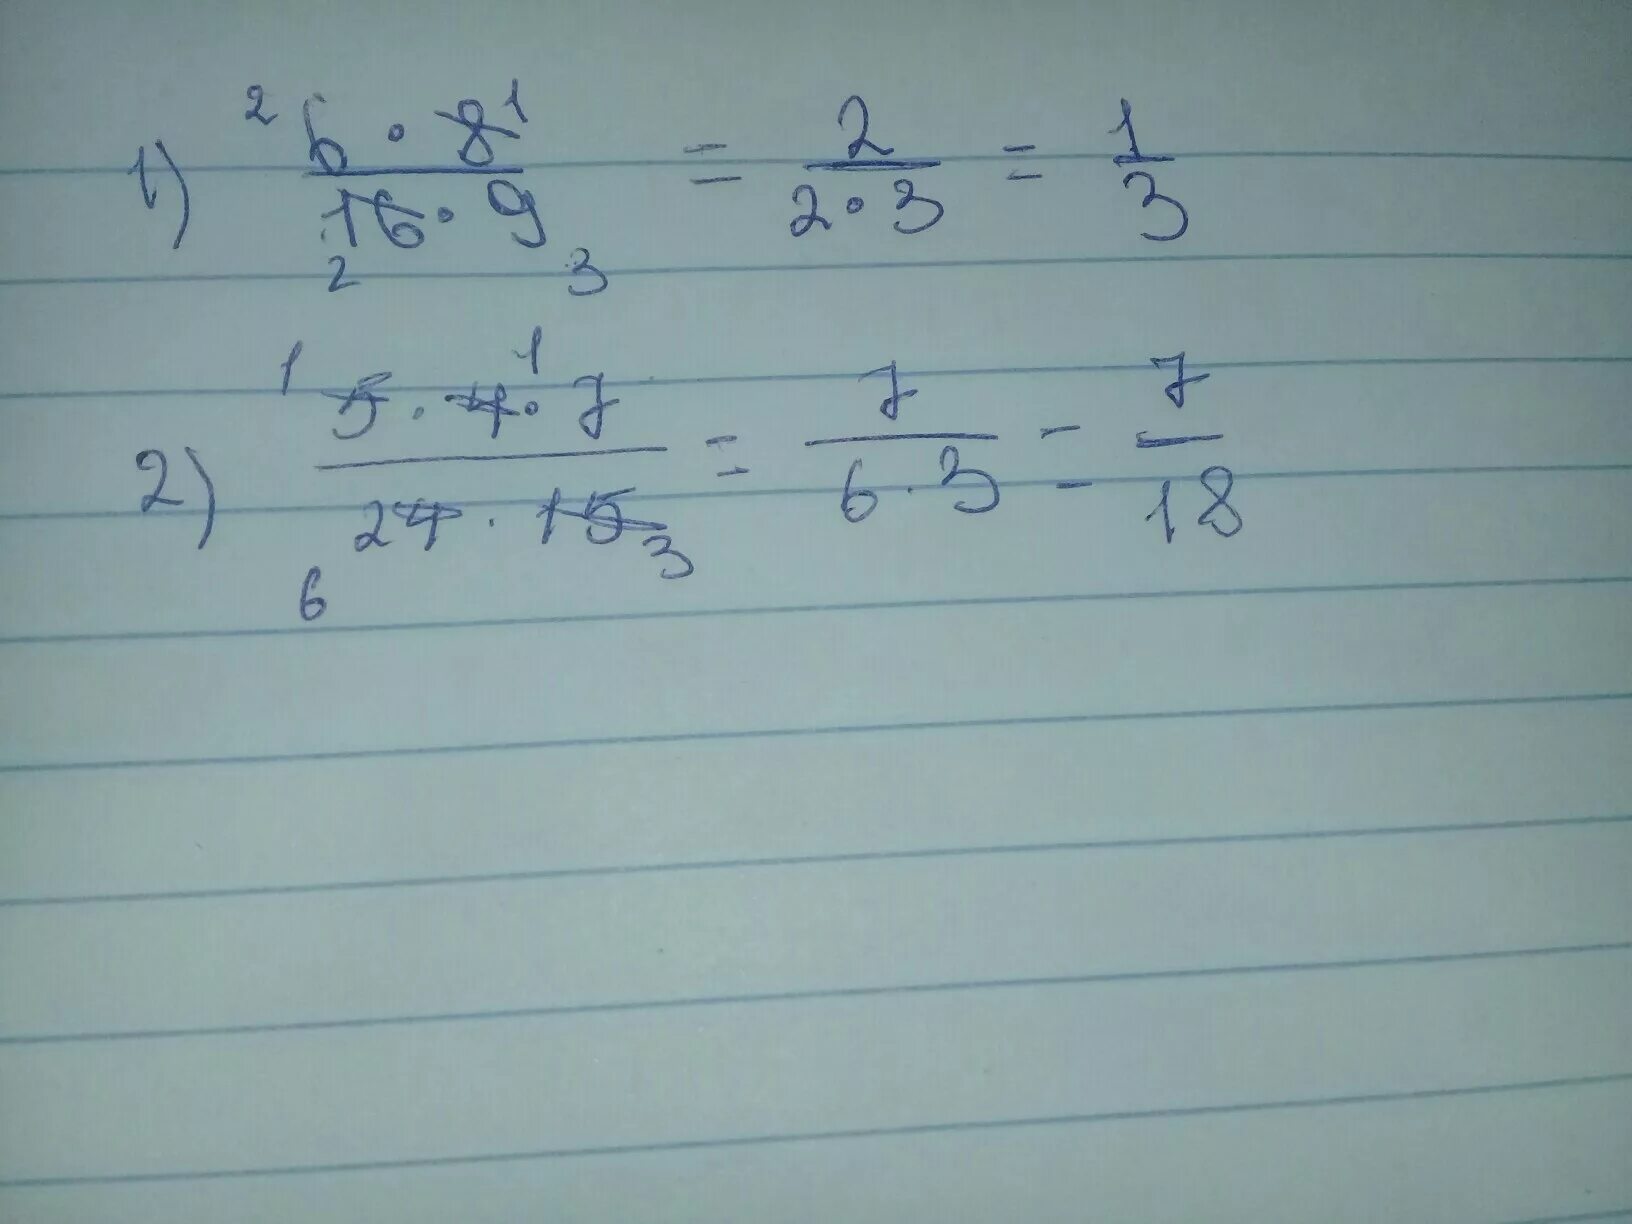 2 6 · 8 1
1) 16 · 9 = 2 / 2·3 = 1 / 3
2 3
1 5 · 4 1 · 7
2) 24 · 15 3 = 7 / 6·3 = 7 / 18
6